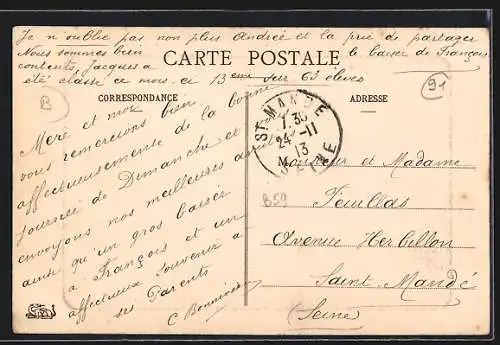 Je n'oublie pas non plus Andrée et la prie de partager
le baiser de François
Nous sommes bien
contents, Jacques a
été classé ce mois-ci 13eme sur 63 élèves
CARTE POSTALE
CORRESPONDANCE
ADRESSE
Mère et moi
vous remercions bien
affectueusement de la bonne
journée de Dimanche et vous
envoyons nos meilleures amitiés
ainsi qu'un gros baiser
à François et un
affectueux souvenir à
ses Parents
C
ST MANDÉ
7 30
24-11
13
SEINE
Monsieur et Madame
Feuillas
Avenue Herbillon
Saint-Mandé
(Seine)
B
91
B59